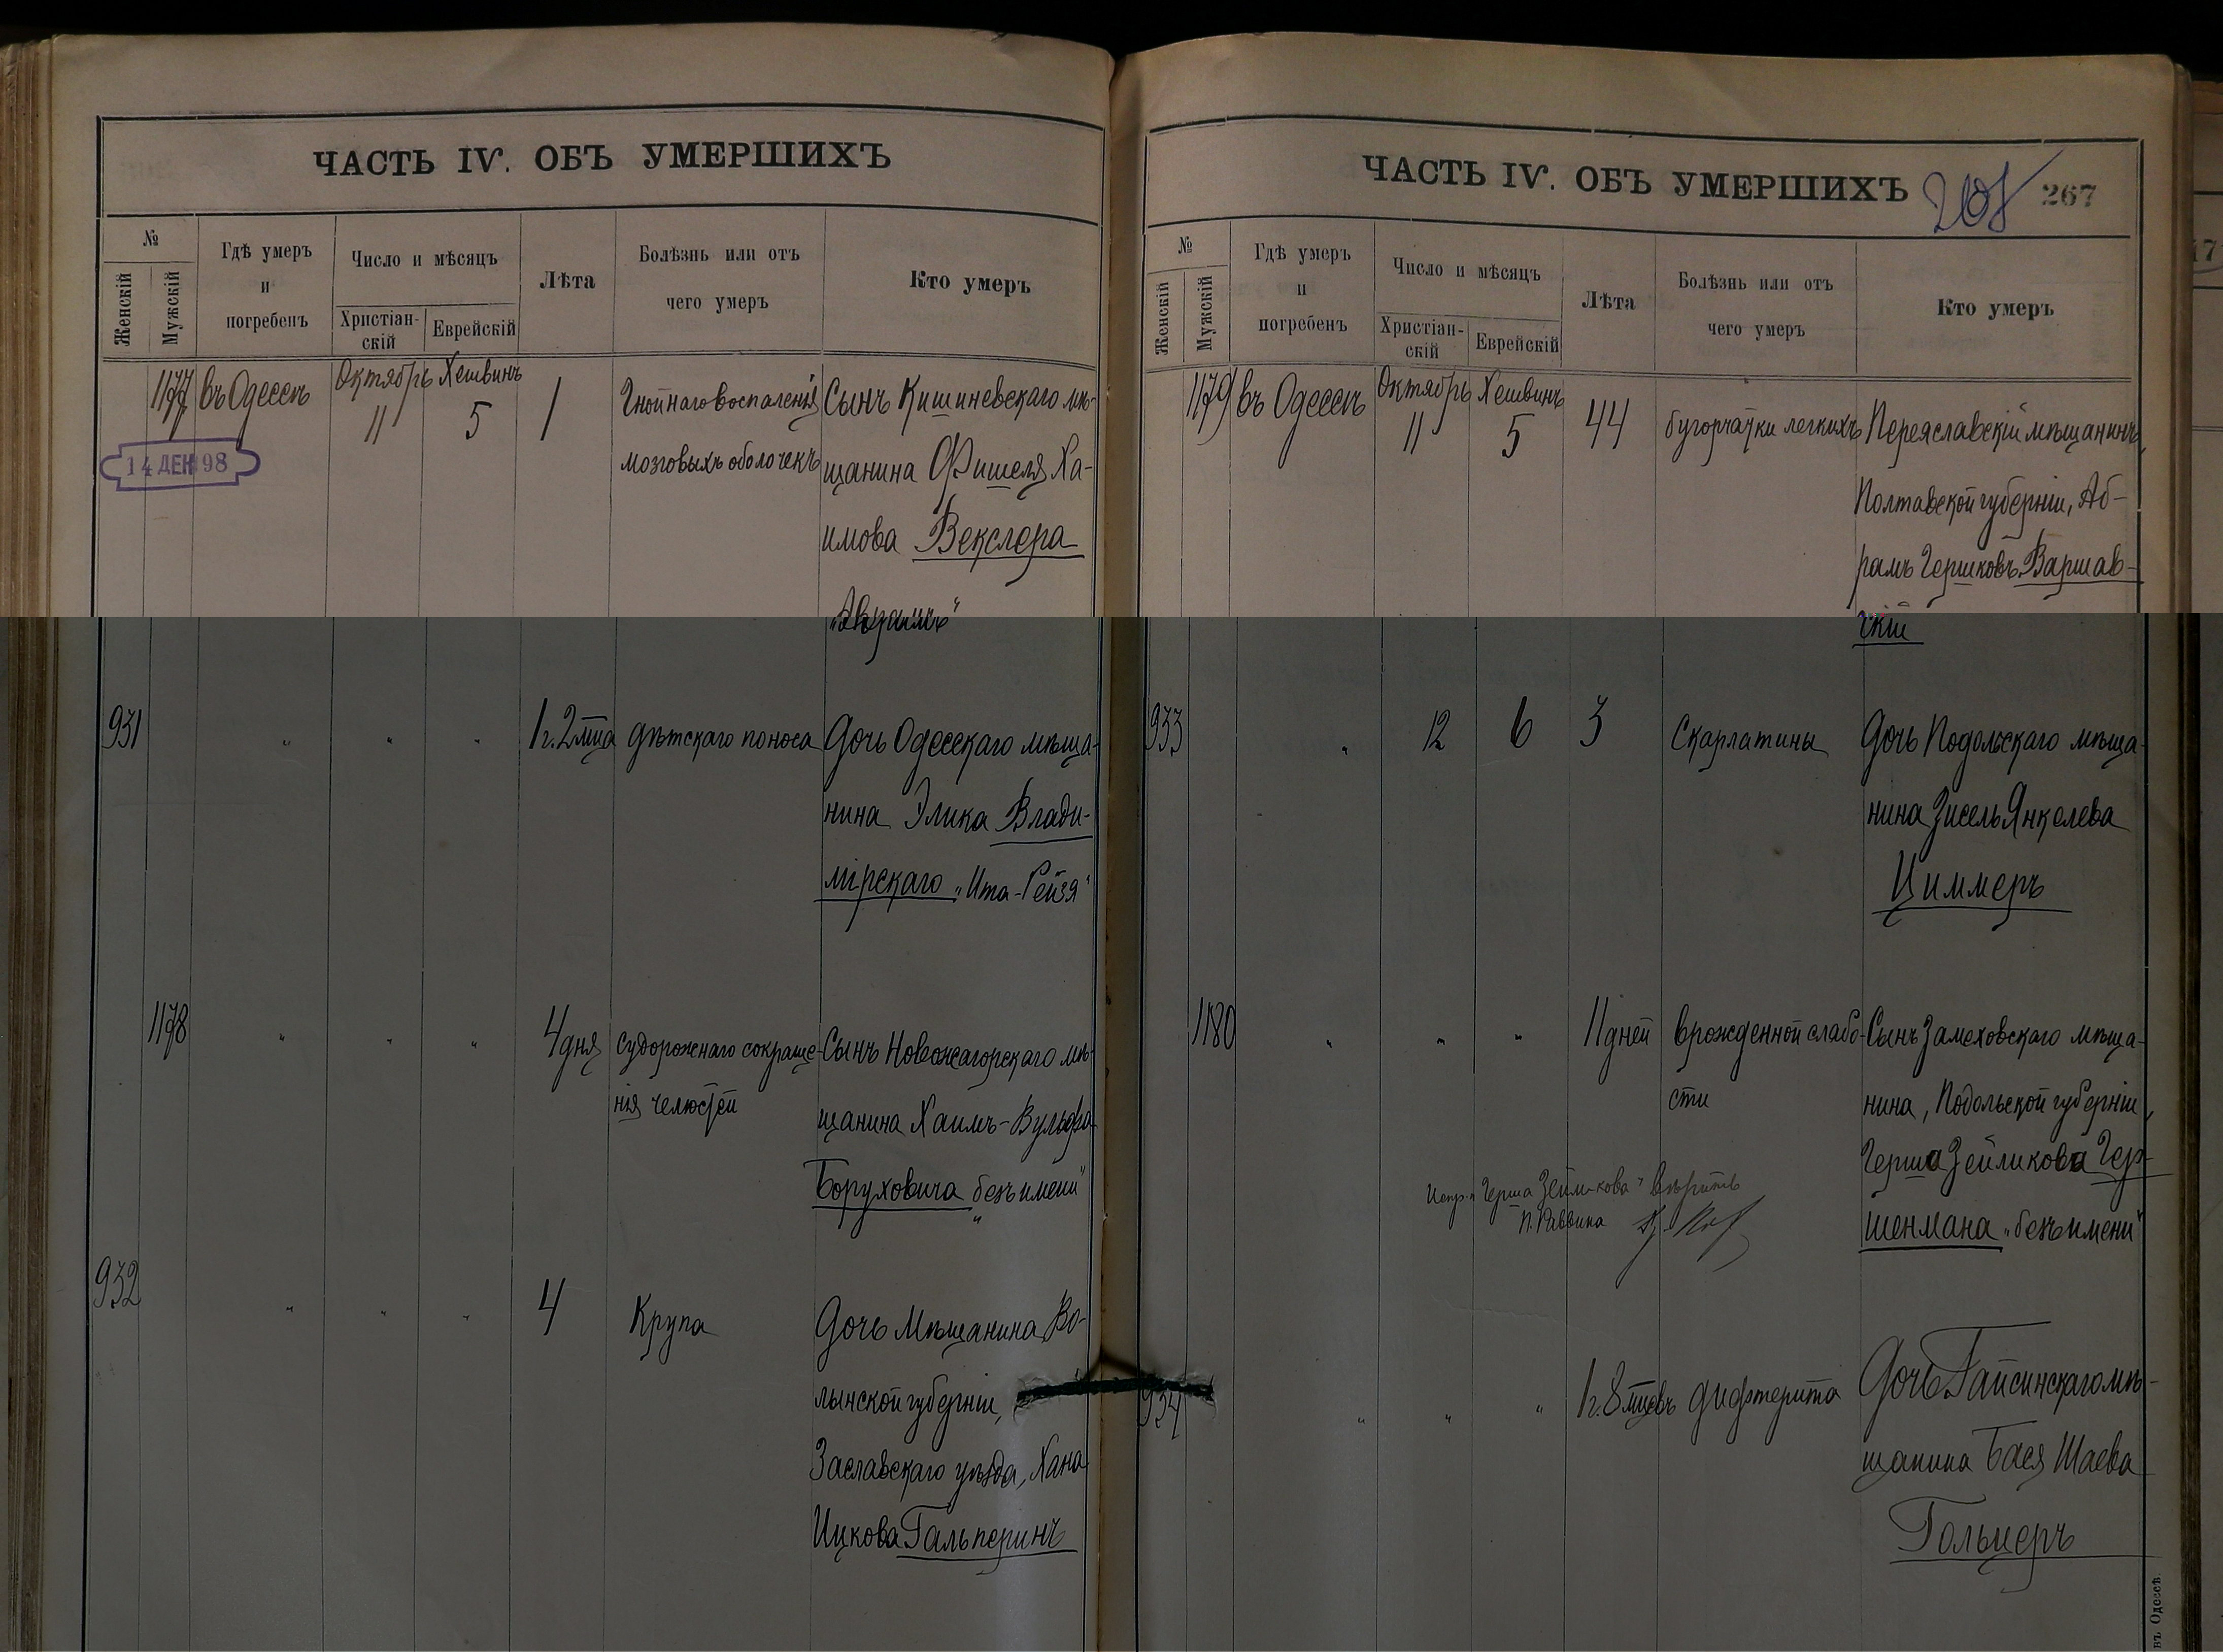 ЧАСТЬ IV. ОБЪ УМЕРШИХЪ
№
Женскій
Мужскій
Гдѣ умеръ
и
погребенъ
Число и мѣсяцъ
Христіан-
скій
Еврейскій
Лѣта
Болѣзнь или отъ
чего умеръ
Кто умеръ
1177
въ Одессѣ
Октябрь
11
Хешвинъ
5
1
Гнойнаго воспаленія
мозговыхъ оболочекъ
Сынъ Кишиневскаго мѣ-
щанина Фишеля Ха-
имова Векслера
„Аврамъ“
14 ДЕК 98
931
"
"
"
1 г. 2 мца
дѣтскаго поноса
Дочь Одесскаго мѣща-
нина Элика Влади-
мірскаго „Ита-Рейзя“
1178
"
"
"
4 дня
Судорожнаго сокраще-
нія челюстей
Сынъ Новожагорскаго мѣ-
щанина Хаимъ-Вульфа
Боруховича „безъ имени“
932
"
"
"
4
Крупа
Дочь Мѣщанина Во-
лынской губерніи,
Заславскаго уѣзда, Хана
Ицкова Гальперинъ
ЧАСТЬ IV. ОБЪ УМЕРШИХЪ
267
№
Женскій
Мужскій
Гдѣ умеръ
и
погребенъ
Число и мѣсяцъ
Христіан-
скій
Еврейскій
Лѣта
Болѣзнь или отъ
чего умеръ
Кто умеръ
1179
въ Одессѣ
Октябрь
11
Хешвинъ
5
44
бугорчатки легкихъ
Переяславскій мѣщанинъ,
Полтавской губерніи, Аб-
рамъ Гершковъ Варшав-
скій
933
"
12
6
3
Скарлатины
Дочь Подольскаго мѣща-
нина Зисель Янкелева
Циммеръ
1180
"
"
"
11 дней
врожденной слабо-
сти
Сынъ Замеховскаго мѣща-
нина, Подольской губерніи,
Герша Зейликова Гер-
шенмана „безъ имени“
Герша Зейликова вѣрить
П. Раввина
934
"
"
"
1 г. 8 мцевъ
дифтерита
Дочь Гайсинскаго мѣ-
щанина Бася Шаева
Гольцеръ
въ Одессѣ.